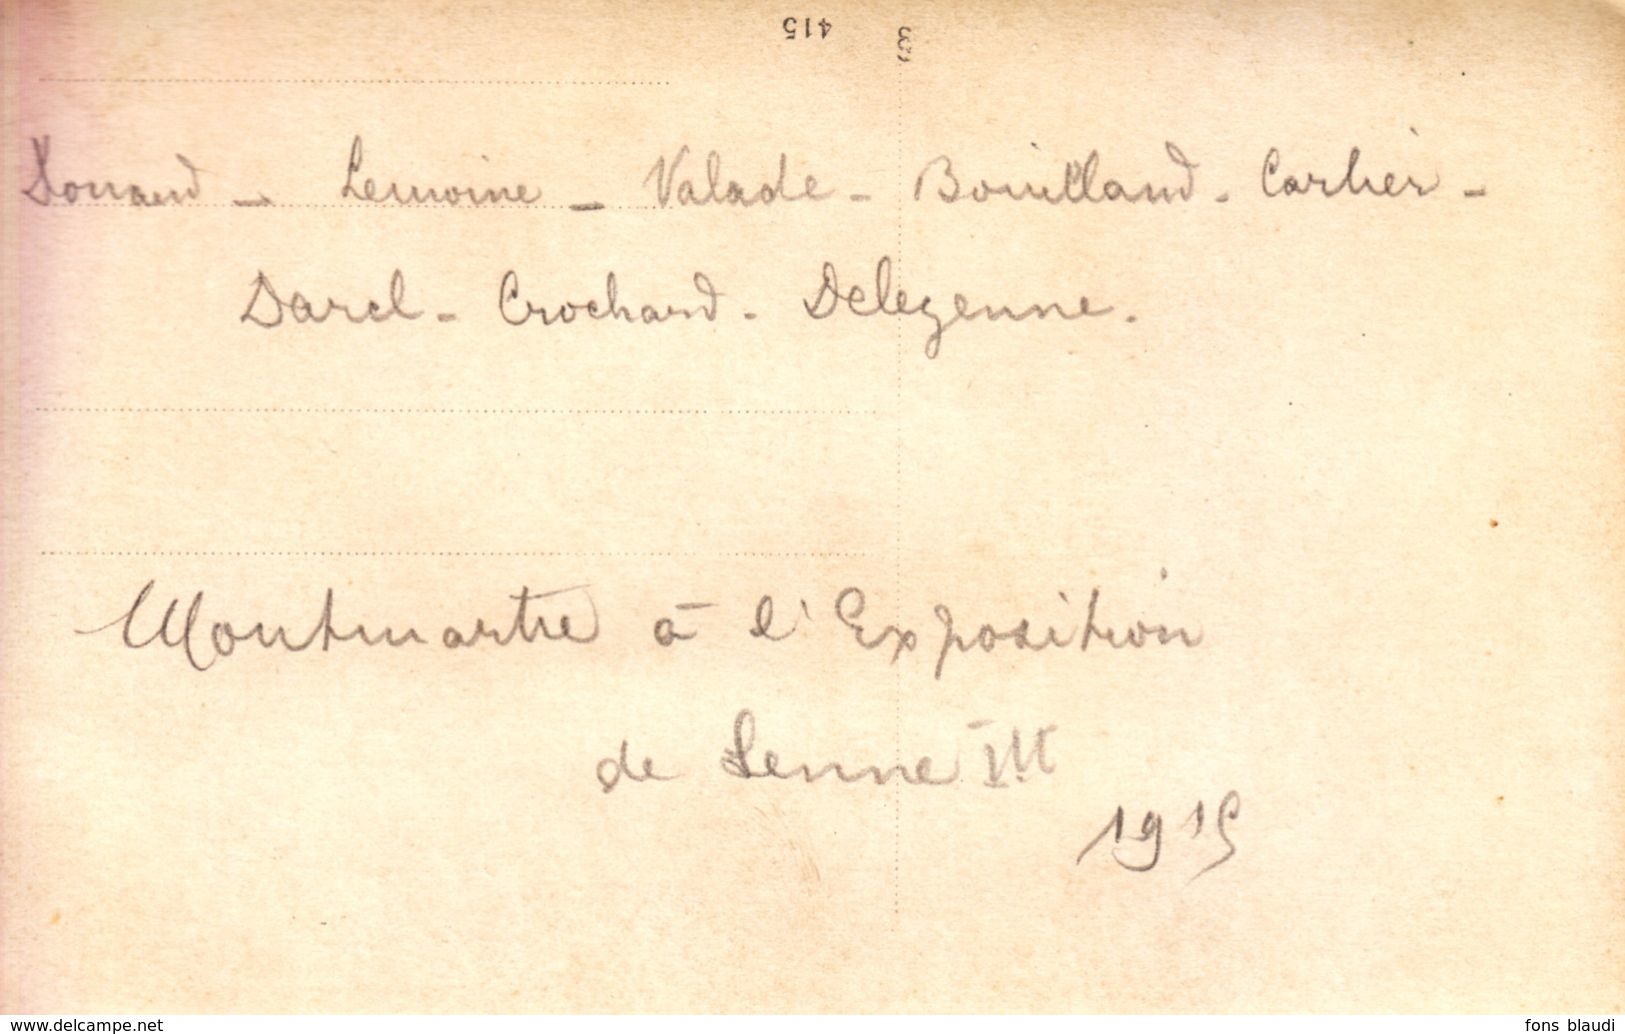 415
Lemoine - Valade - Bouilland - Carlier -
Darcl - Crochard - Delezenne.
Montmartre à l'Exposition
de Senne III
1915
www.delcampe.net
fons blaudi